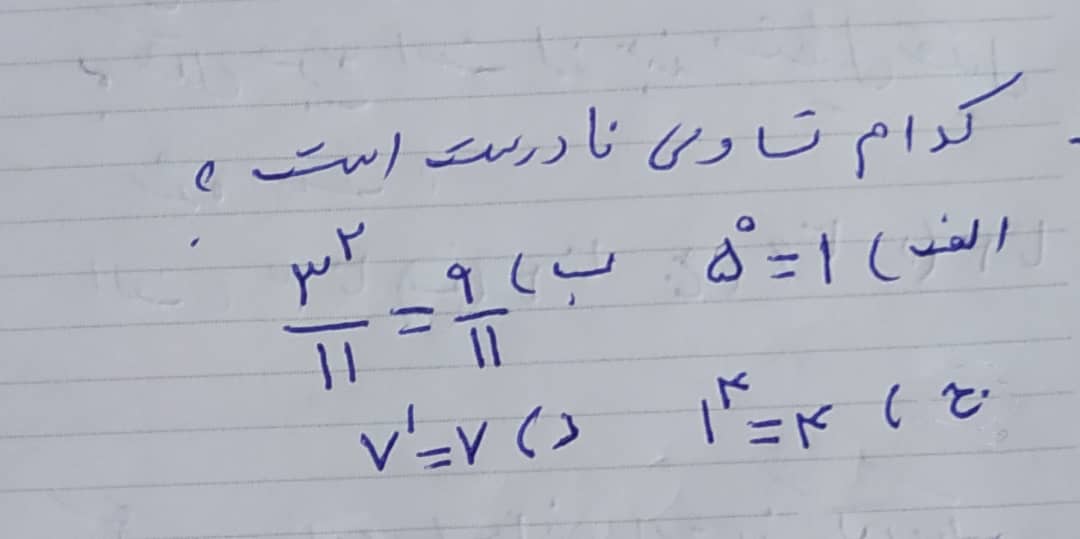 کدام تساوی نادرست است ؟
الف) ۵^۰ = ۱   ب) ۳^۲/۱۱ = ۹/۱۱
ج) ۱^۴ = ۴   د) ۷^۱ = ۷